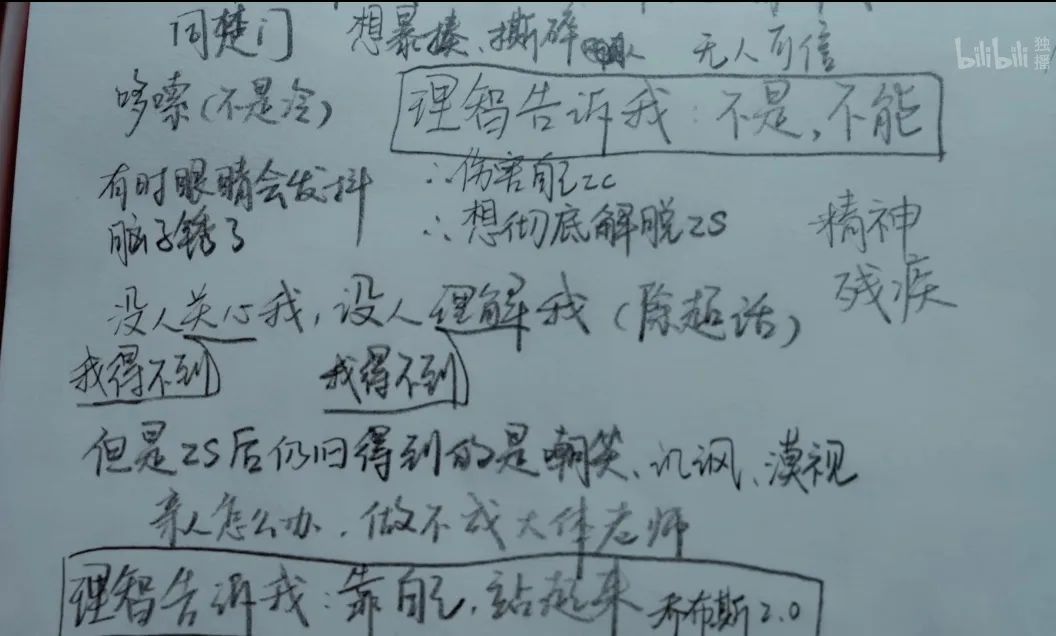 同楚门 想暴揍、撕碎 人 无人可信
bilibili 独播
哆嗦(不是冷)
理智告诉我:不是,不能
有时眼睛会发抖
∴伤害自己zc
脑子锈了
∴想彻底解脱zs
精神
残疾
没人关心我,没人理解我(除超话)
我得不到 我得不到
但是zs后仍旧得到的是嘲笑、讥讽、漠视
亲人怎么办,做不成大体老师
理智告诉我:靠自己,站起来 乔布斯2.0